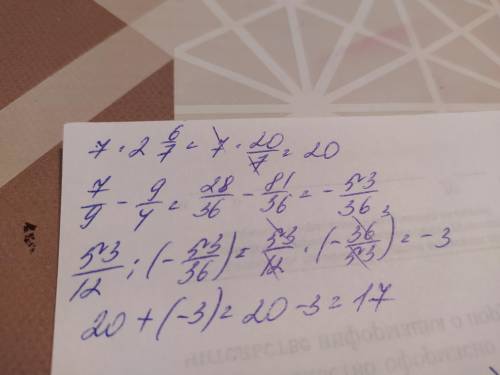 7 · 2 6/7 = 7 · 20/7 = 20
7/9 - 9/4 = 28/36 - 81/36 = - 53/36
53/12 : (- 53/36) = 53/12 · (- 36/53) 3 = -3
20 + (-3) = 20 - 3 = 17